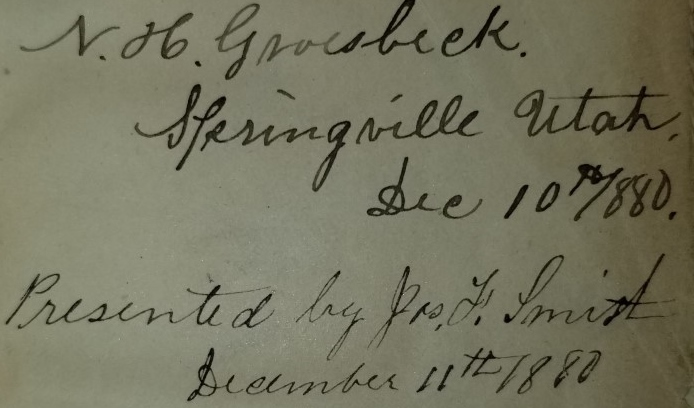 N. H. Groesbeck.
Springville Utah.
Dec 10th/880.
Presented by Jos. F. Smith
December 11th/1880